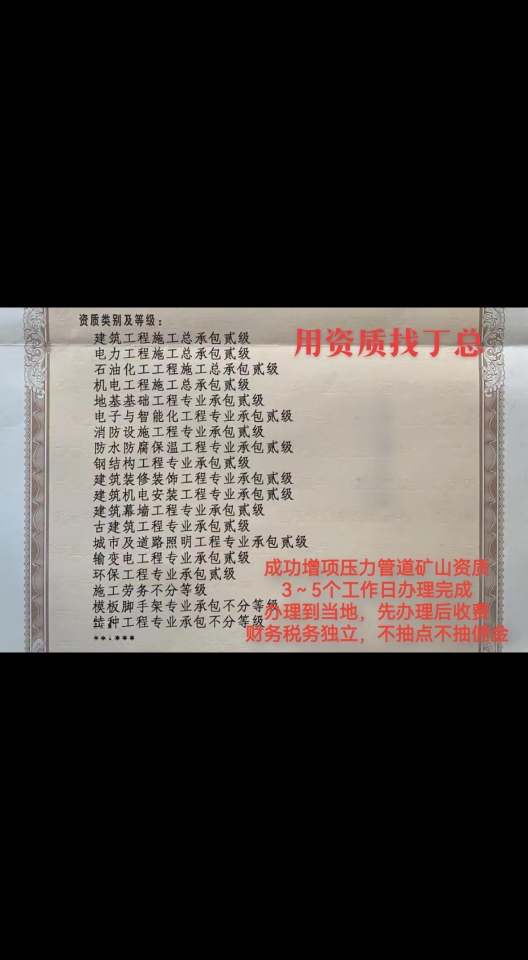 资质类别及等级：
用资质找丁总
建筑工程施工总承包贰级
电力工程施工总承包贰级
石油化工工程施工总承包贰级
机电工程施工总承包贰级
地基基础工程专业承包贰级
电子与智能化工程专业承包贰级
消防设施工程专业承包贰级
防水防腐保温工程专业承包贰级
钢结构工程专业承包贰级
建筑装修装饰工程专业承包贰级
建筑机电安装工程专业承包贰级
建筑幕墙工程专业承包贰级
古建筑工程专业承包贰级
城市及道路照明工程专业承包贰级
输变电工程专业承包贰级
环保工程专业承包贰级
施工劳务不分等级
模板脚手架专业承包不分等级
特种工程专业承包不分等级
**.***
成功增项压力管道矿山资质
3～5个工作日办理完成
办理到当地，先办理后收费
财务税务独立，不抽点不抽佣金